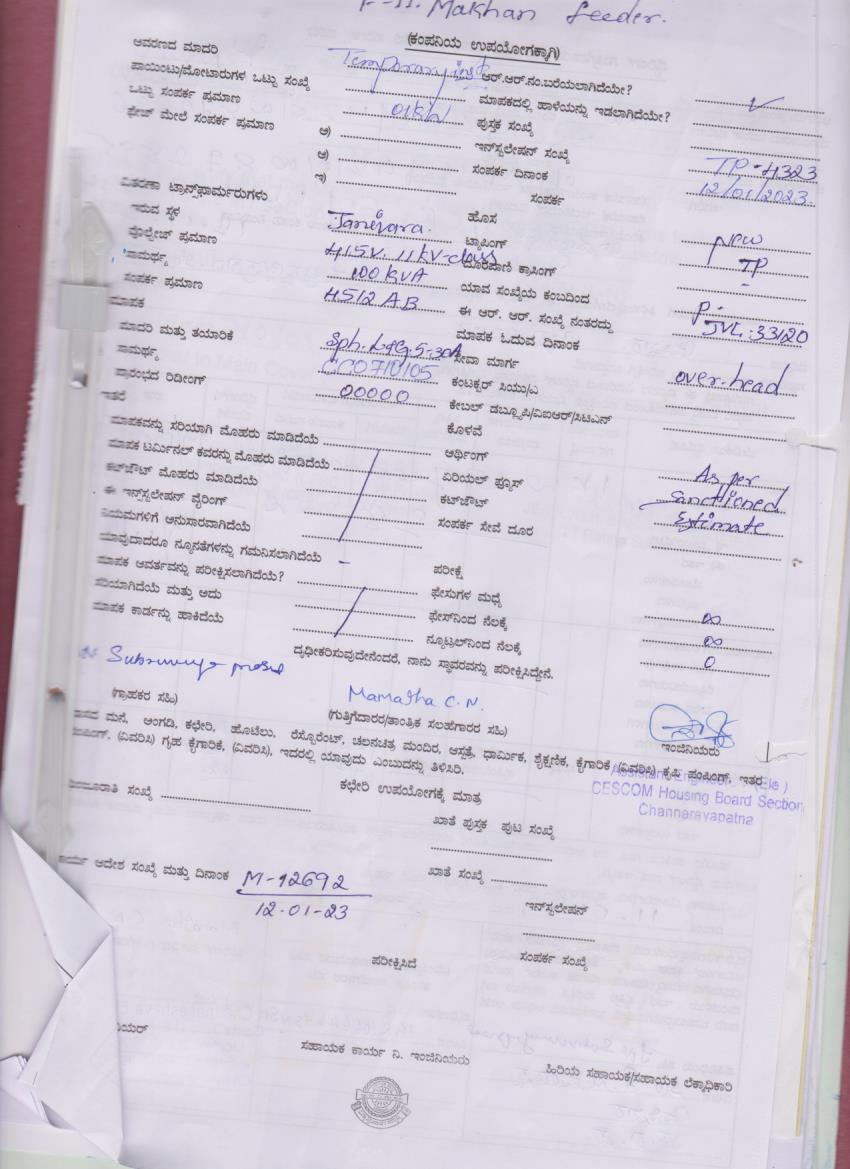 F-11. Makhan feeder.
(ಕಂಪನಿಯ ಉಪಯೋಗಕ್ಕಾಗಿ)
ಆವರಣದ ಮಾದರಿ Temporary ಆರ್.ಆರ್.ನಂ.ಬರೆಯಲಾಗಿದೆಯೇ? ✓
ಪಾಯಿಂಟು/ಮೋಟಾರುಗಳ ಒಟ್ಟು ಸಂಖ್ಯೆ ಮಾಪಕದಲ್ಲಿ ಹಾಳೆಯನ್ನು ಇಡಲಾಗಿದೆಯೇ?
ಒಟ್ಟು ಸಂಪರ್ಕ ಪ್ರಮಾಣ 01KW ಪುಸ್ತಕ ಸಂಖ್ಯೆ
ಫೇಜ್ ಮೇಲೆ ಸಂಪರ್ಕ ಪ್ರಮಾಣ ಅ) ಇನ್‌ಸ್ಟಲೇಷನ್ ಸಂಖ್ಯೆ TP-4323
ಆ) ಸಂಪರ್ಕ ದಿನಾಂಕ 12/01/2023
ಇ) ಸಂಪರ್ಕ
ವಿತರಣಾ ಟ್ರಾನ್ಸ್‌ಫಾರ್ಮರುಗಳು ಹೊಸ New
ಇರುವ ಸ್ಥಳ Janivara. ಟ್ಯಾಪಿಂಗ್ TP
ವೋಲ್ಟೇಜ್ ಪ್ರಮಾಣ 415V. 11kV-class ದೂರವಾಣಿ ಕ್ರಾಸಿಂಗ್ -
ಸಾಮರ್ಥ್ಯ 100 KVA ಯಾವ ಸಂಖ್ಯೆಯ ಕಂಬದಿಂದ P-
ಸಂಪರ್ಕ ಪ್ರಮಾಣ 4512 AB ಈ ಆರ್. ಆರ್. ಸಂಖ್ಯೆ ನಂತರದ್ದು JVL-33120
ಮಾಪಕ ಮಾಪಕ ಓದುವ ದಿನಾಂಕ
ಮಾದರಿ ಮತ್ತು ತಯಾರಿಕೆ Sph. L&G. 5-30A ಸೇವಾ ಮಾರ್ಗ over-head
ಸಾಮರ್ಥ್ಯ CC0710105 ಕಂಟಕ್ಟರ್ ಸಿಯು/ಎ
ಪ್ರಾರಂಭದ ರಿಡೀಂಗ್ 00000 ಕೇಬಲ್ ಡಬ್ಲ್ಯೂಪಿ/ವಿಐಆರ್/ಸಿಟಿಎನ್
ಇತರೆ ಕೊಳವೆ
ಮಾಪಕವನ್ನು ಸರಿಯಾಗಿ ಮೊಹರು ಮಾಡಿದೆಯೆ ಅರ್ಥಿಂಗ್
ಮಾಪಕ ಟರ್ಮಿನಲ್ ಕವರನ್ನು ಮೊಹರು ಮಾಡಿದೆಯೆ ಏರಿಯಲ್ ಫ್ಯೂಸ್ As per
ಕಟ್‌ಔಟ್ ಮೊಹರು ಮಾಡಿದೆಯೆ ಕಟ್‌ಔಟ್ Sanctioned
ಈ ಇನ್ಸ್‌ಟಲೇಷನ್ ವೈರಿಂಗ್ ಸಂಪರ್ಕ ಸೇವೆ ದೂರ Estimate
ನಿಯಮಗಳಿಗೆ ಅನುಸಾರವಾಗಿದೆಯೆ
ಯಾವುದಾದರೂ ನ್ಯೂನತೆಗಳನ್ನು ಗಮನಿಸಲಾಗಿದೆಯೆ - ಪರೀಕ್ಷೆ
ಮಾಪಕ ಆವರ್ತವನ್ನು ಪರೀಕ್ಷಿಸಲಾಗಿದೆಯೆ? ಫೇಸುಗಳ ಮಧ್ಯೆ ∞
ಸರಿಯಾಗಿದೆಯೆ ಮತ್ತು ಅದು ಫೇಸ್‌ನಿಂದ ನೆಲಕ್ಕೆ ∞
ಮಾಪಕ ಕಾರ್ಡನ್ನು ಹಾಕಿದೆಯೆ ನ್ಯೂಟ್ರಲ್‌ನಿಂದ ನೆಲಕ್ಕೆ 0
ದೃಢೀಕರಿಸುವುದೇನೆಂದರೆ, ನಾನು ಸ್ಥಾವರವನ್ನು ಪರೀಕ್ಷಿಸಿದ್ದೇನೆ.
Mamatha C.N.
(ಗ್ರಾಹಕರ ಸಹಿ) (ಗುತ್ತಿಗೆದಾರರ/ತಾಂತ್ರಿಕ ಸಲಹೆಗಾರರ ಸಹಿ) ಇಂಜಿನಿಯರು
ಮನೆ, ಅಂಗಡಿ, ಕಛೇರಿ, ಹೊಟೆಲು, ರೆಸ್ಟೊರೆಂಟ್, ಚಲನಚಿತ್ರ ಮಂದಿರ, ಆಸ್ಪತ್ರೆ, ಧಾರ್ಮಿಕ, ಶೈಕ್ಷಣಿಕ, ಕೈಗಾರಿಕೆ (ವಿವರಿಸಿ) ಕೃಷಿ ಪಂಪಿಂಗ್, ಇತರ
(ವಿವರಿಸಿ) ಗೃಹ ಕೈಗಾರಿಕೆ, (ವಿವರಿಸಿ), ಇದರಲ್ಲಿ ಯಾವುದು ಎಂಬುದನ್ನು ತಿಳಿಸಿರಿ.
Assistant Engineer (Ele)
CESCOM Housing Board Section
Channarayapatna
ಸಂಖ್ಯೆ ಕಛೇರಿ ಉಪಯೋಗಕ್ಕೆ ಮಾತ್ರ
ಖಾತೆ ಪುಸ್ತಕ ಪುಟ ಸಂಖ್ಯೆ
ಆದೇಶ ಸಂಖ್ಯೆ ಮತ್ತು ದಿನಾಂಕ M-12692 ಖಾತೆ ಸಂಖ್ಯೆ
12-01-23 ಇನ್‌ಸ್ಟಲೇಷನ್
ಪರೀಕ್ಷಿಸಿದೆ ಸಂಪರ್ಕ ಸಂಖ್ಯೆ
ಸಹಾಯಕ ಕಾರ್ಯ ನಿ. ಇಂಜಿನಿಯರು ಹಿರಿಯ ಸಹಾಯಕ/ಸಹಾಯಕ ಲೆಕ್ಕಾಧಿಕಾರಿ